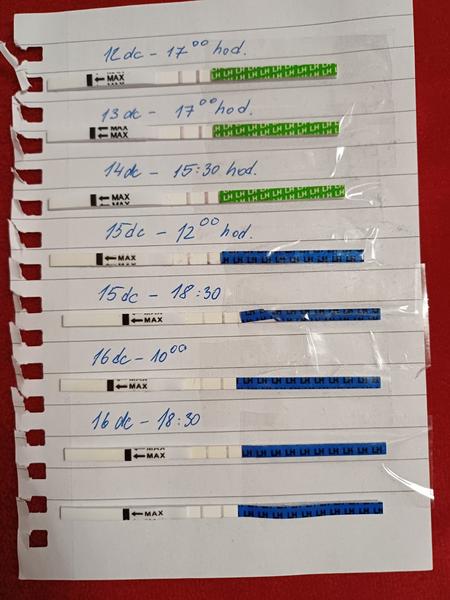 12dc - 17⁰⁰ hod.
← MAX LH LH LH LH LH LH LH LH
13dc - 17⁰⁰ hod.
← MAX LH LH LH LH LH LH LH LH
14dc - 15:30 hod.
← MAX LH LH LH LH LH LH LH LH
15dc - 12⁰⁰ hod.
← MAX LH LH LH LH LH LH LH LH
15dc - 18:30
← MAX LH LH LH LH LH LH LH
16dc - 10⁰⁰
← MAX LH LH LH LH LH LH LH LH
16dc - 18:30
← MAX LH LH LH LH LH LH LH LH
← MAX LH LH LH LH LH LH LH LH